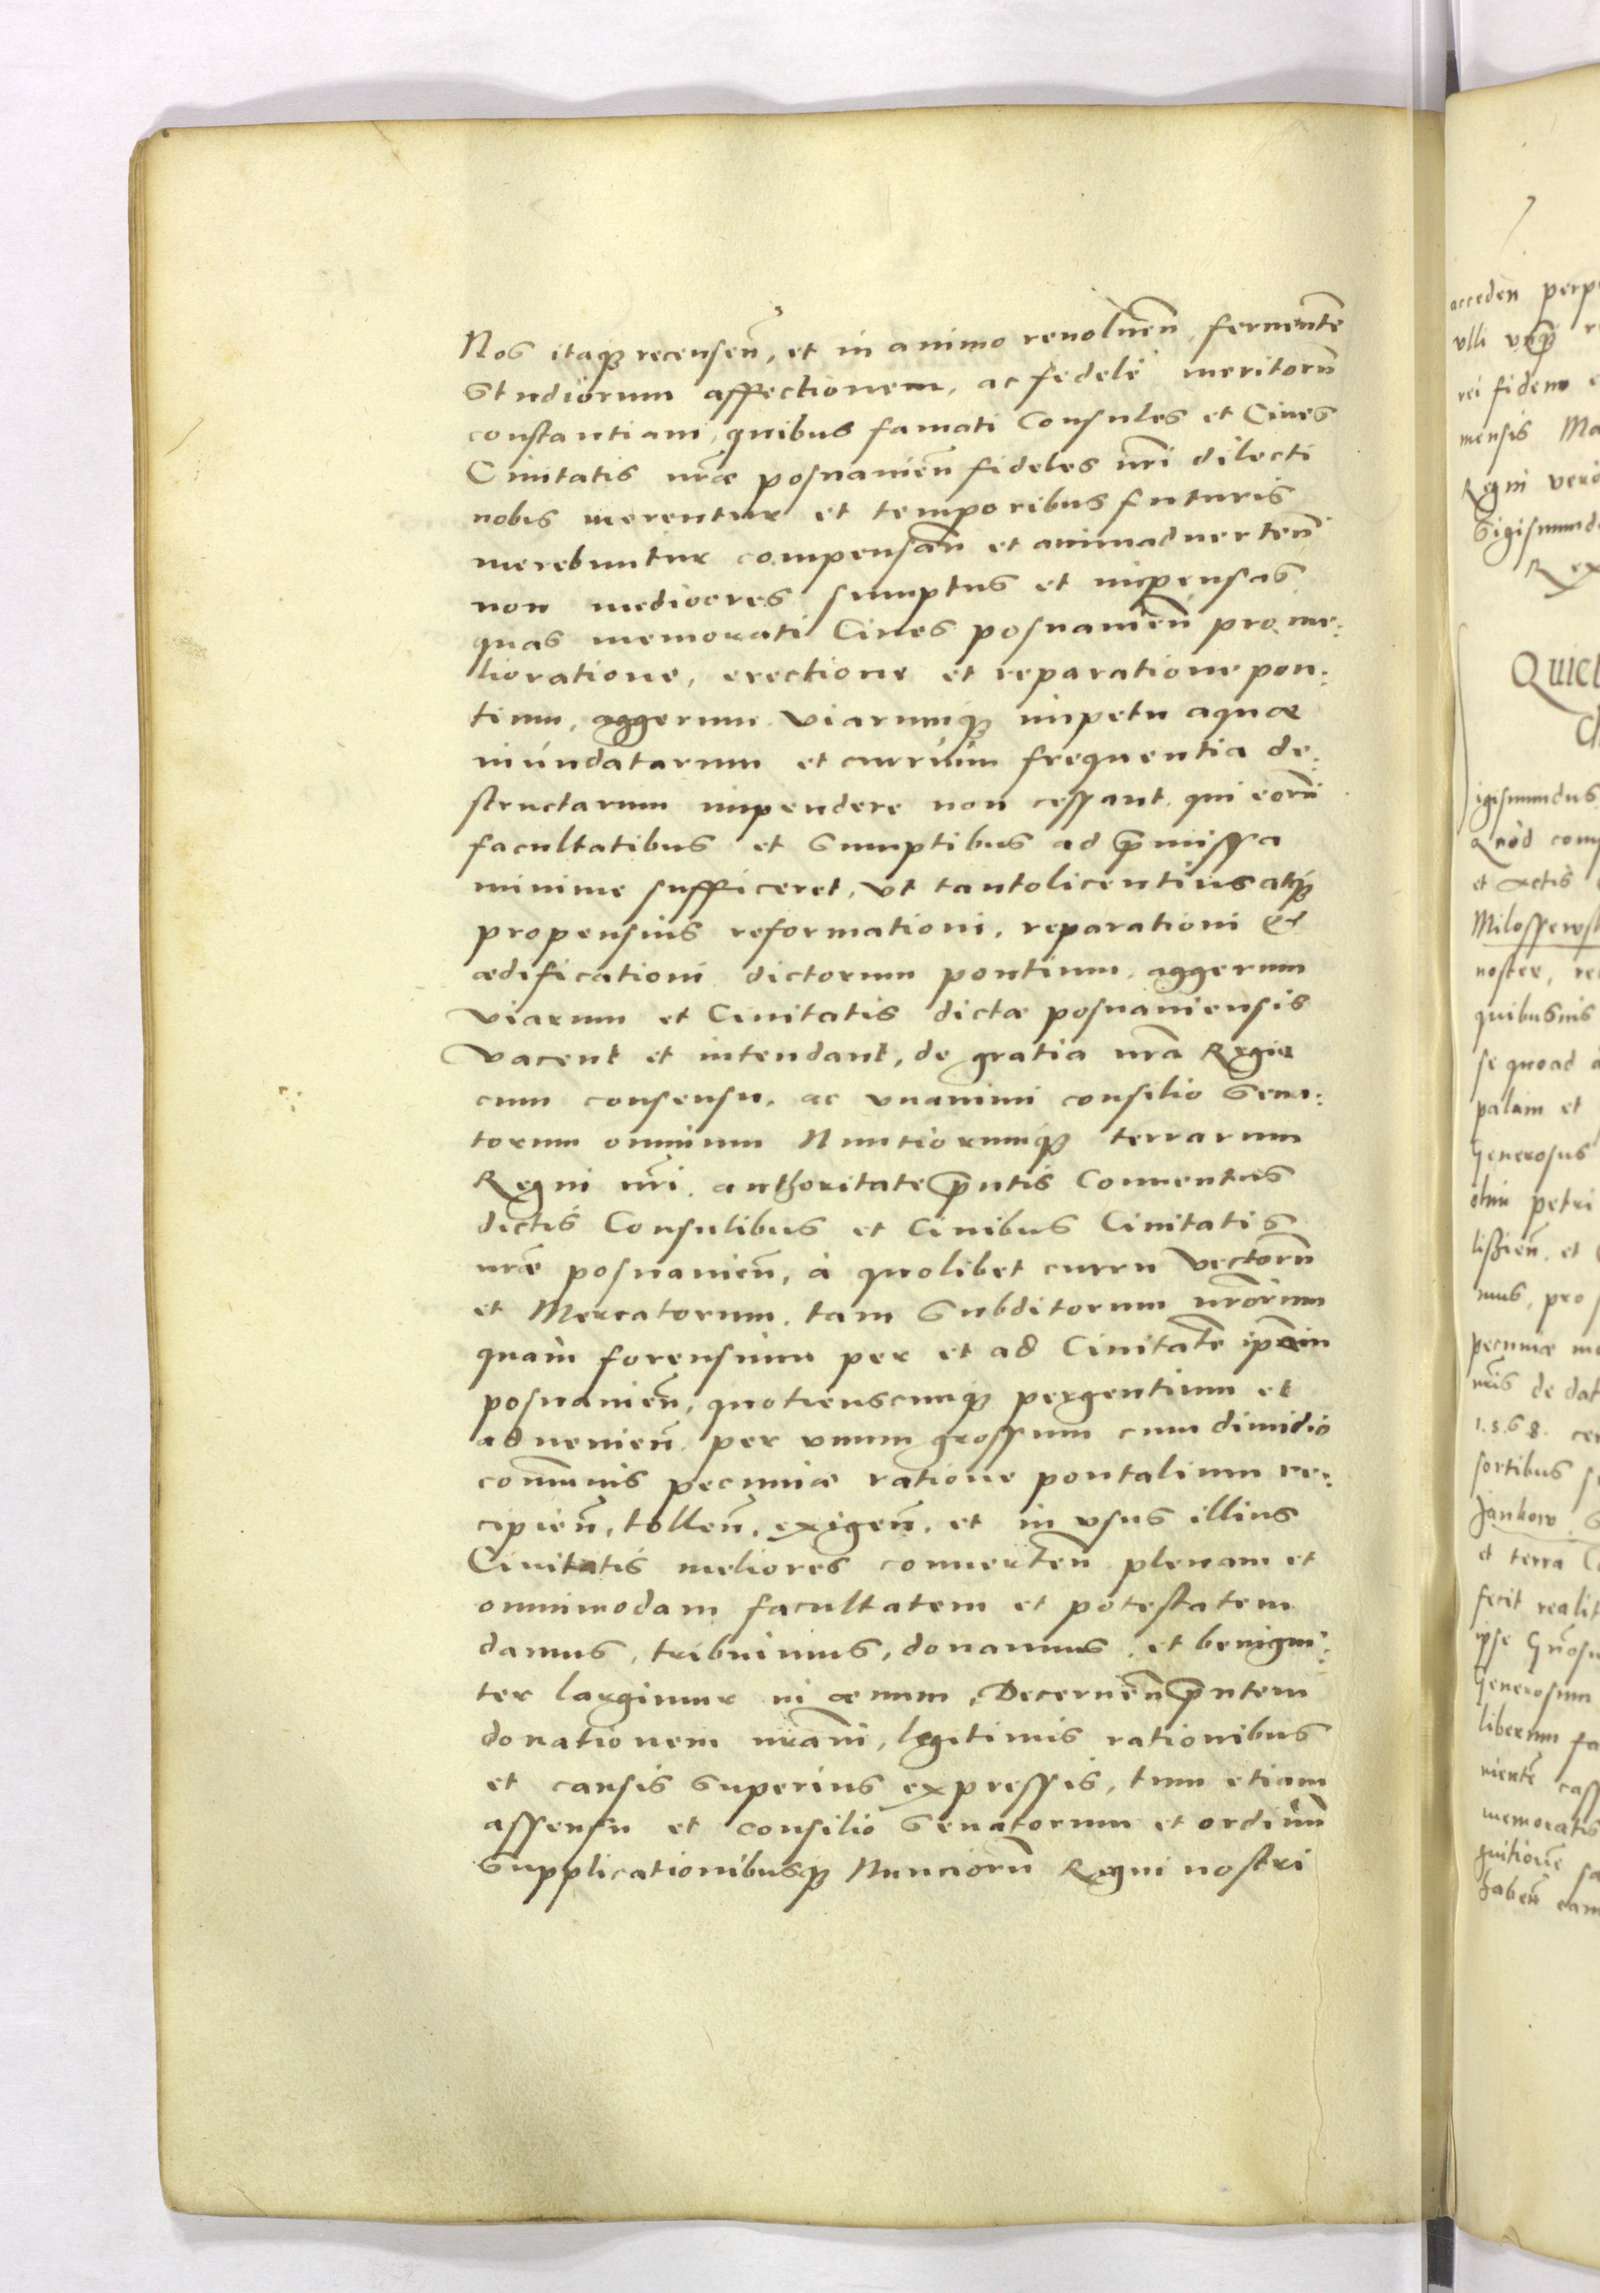 Nos itaq₃ recensen̄, et in animo reuoluen̄, feruente̅
Studiorum affectionem, ac fedele̅ meritoru̅
constantiam, quibus famati Consules et Ciues
Ciuitatis nr̄æ posnanien̄ fideles nr̄i dilecti
nobis merentur et temporibus futuris
merebuntur compensan̄ et animaduerten̄
non mediocres sumptus et impensas
quas memorati Ciues posnanien̄ pro me:
lioratione, erectione et reparatione pon:
tium, aggerum viarumq₃ impetu aquæ
inundatarum et curruum frequentia de:
structarum impendere non cessant, qui eoru̅
facultatibus et Sumptibus ad p̄missa
minime sufficeret, vt tantolicentius atq₃
propensius reformationi, reparationi et
ædificationi dictorum pontium, aggerum
viarum et Ciuitatis dictæ posnaniensis
vacent et intendant, de gratia nr̄a Regia
cum consensu, ac vnanimi consilio Sena:
torum omnium Nuntiorumq₃ terrarum
Regni nr̄i, authoritate p̄ntis Conuentus
dictis Consulibus et Ciuibus Ciuitatis
nr̄æ posnanien̄, à quolibet curru Vectoru̅
et Mercatorum, tam Subditorum nr̄orum
quam forensium per et ad Ciuitate̅ ip̄am
posnanien̄, quotienscumq₃ pergentium et
aduenien̄ per vnum grossum cum dimidio
com̅unis pecuniæ ratione pontalium re:
cipien̄, tollen̄, exigen̄, et in vsus illius
Ciuitatis meliores conuerten̄ plenam et
omnimodam facultatem et potestatem
damus, tribuimus, donamus, et benigni:
ter largimur in æuum, Decernen̄ p̄ntem
donationem nr̄am, legitimis rationibus
et causis Superius expressis, tum etiam
assensu et consilio Senatorum et ordinu̅
Supplicationibusq₃ Nuncioru̅ Regni nostri
acceden̄
vlli vnq̄
rei fidem
mensis
Regni vero
Sigismund
Rex
igismundus
Quod
et Actis
noster,
quibusuis
se quoad
palam et
Generosus
olim petri
et
mus, pro
pecuniæ
de dat
1568.
sortibus
Jankow
et terra
fecit realit
ipse
Generosum
liberum
memoratis
haben̄ eam